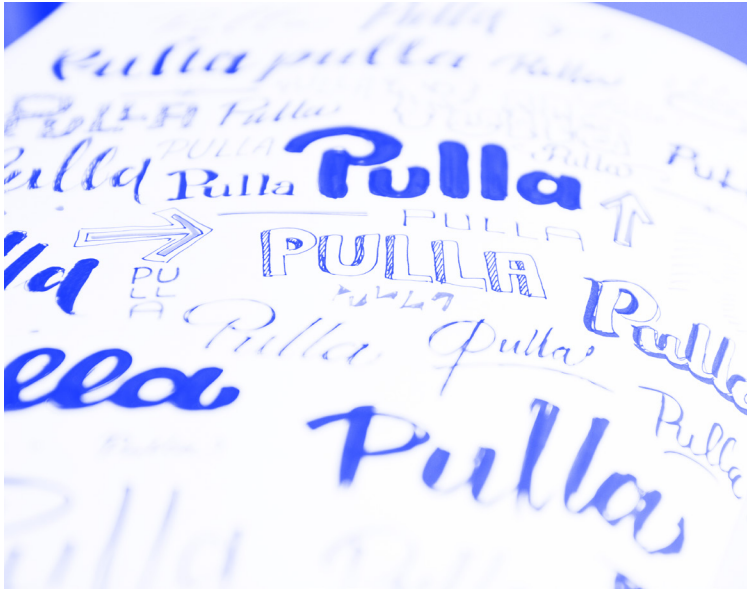 Pulla pulla Pulla
PULLA Pulla
PULLA Pulla PUL
ulla Pulla Pulla
PULLA
PULLA
PU
LL
A
lla
PULLA
Pulla
Pulla Pulla
Pulla
lla
Pulla
Pulla